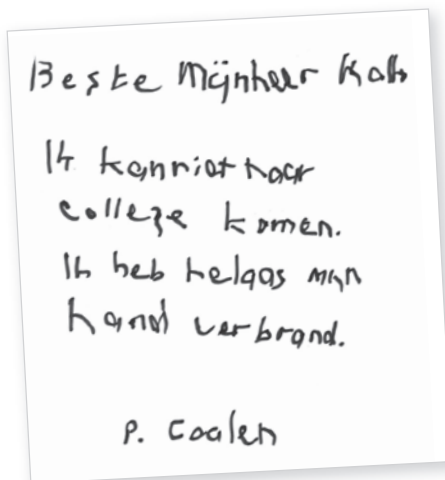 Beste Mijnheer Kals
Ik kan niet naar
college komen.
Ik heb helaas mijn
hand verbrand.
P. Coolen